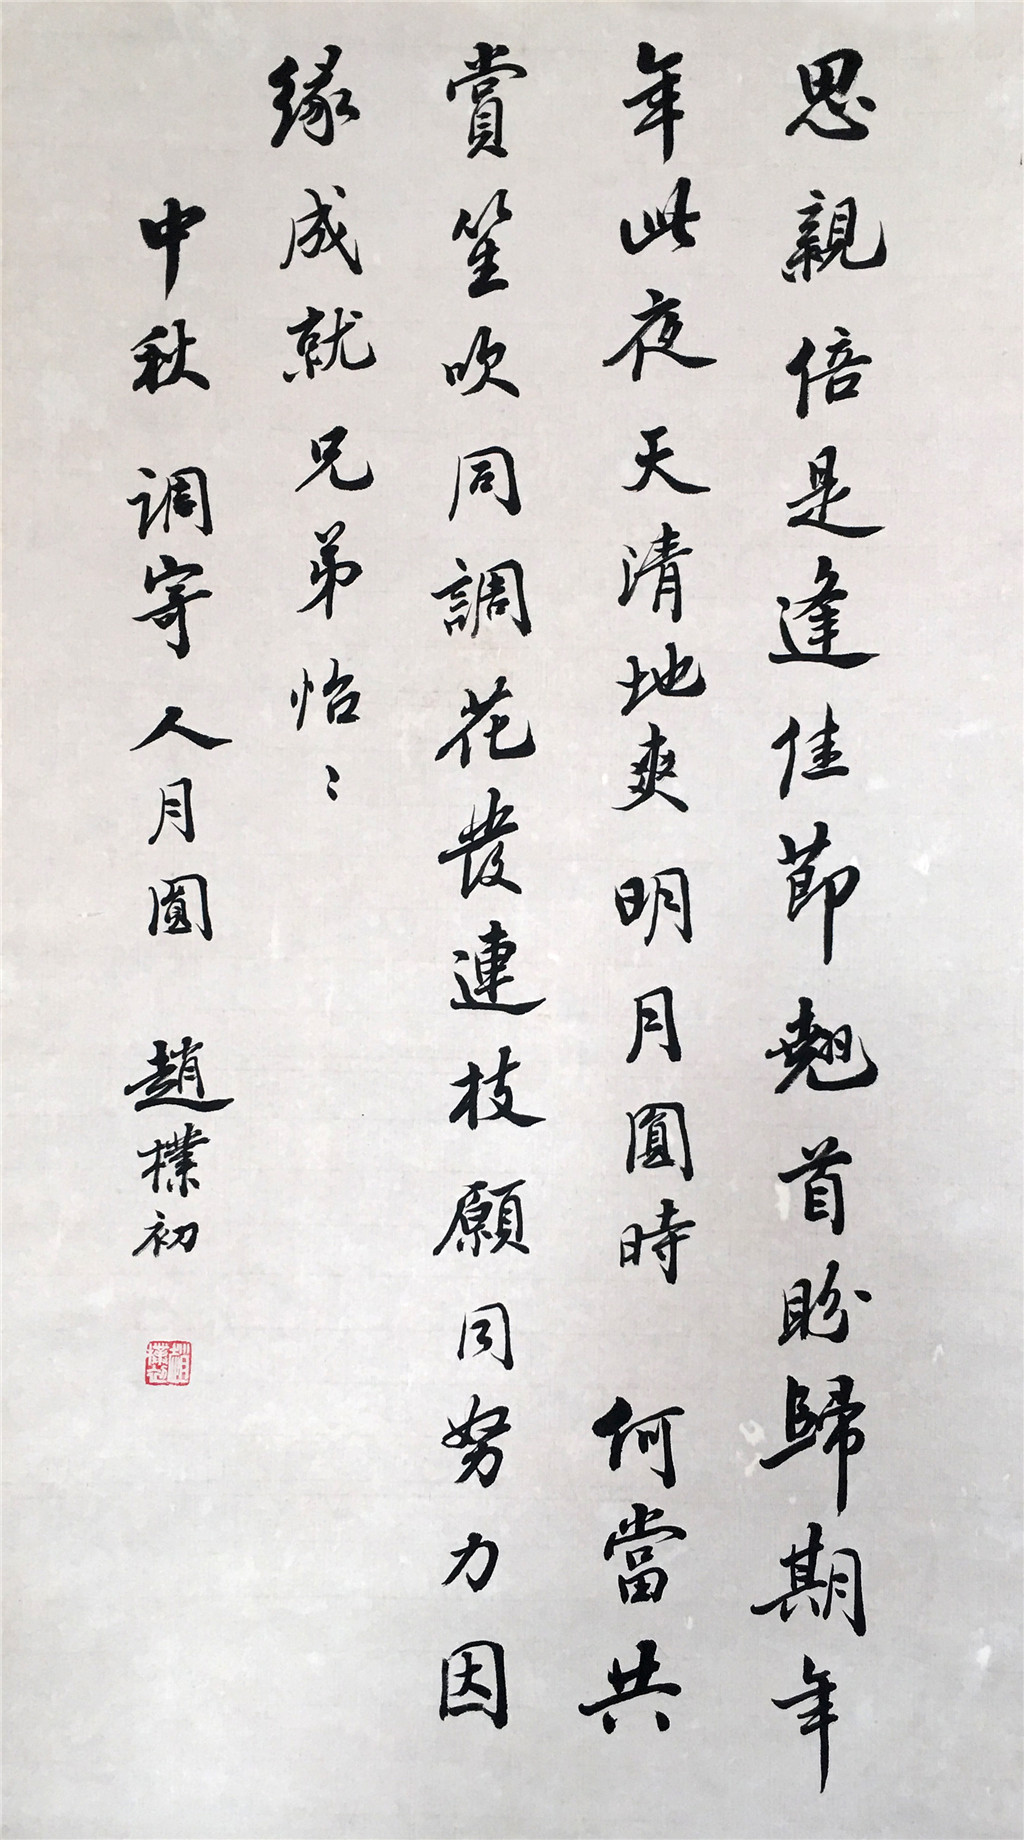 思親倍是逢佳節翹首盼歸期年
年此夜天清地爽明月圓時 何當共
賞笙吹同調花發連枝願同努力因
緣成就兄弟怡〻
中秋 调寄人月圓 趙樸初
趙樸初